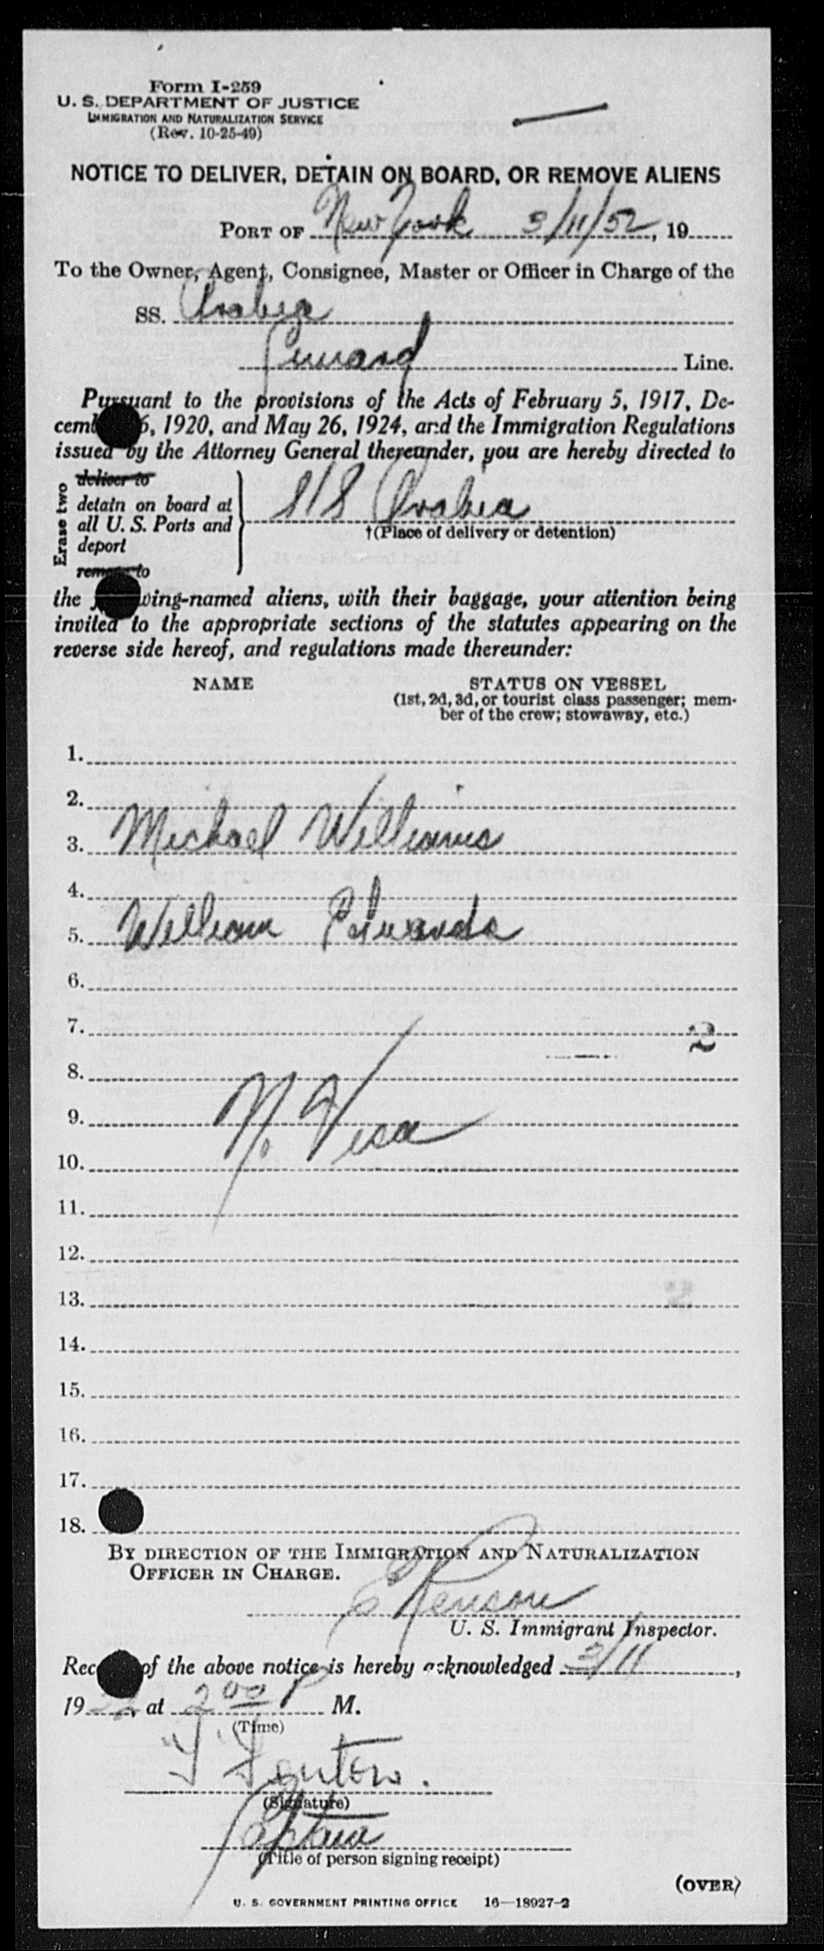 Form I-259
U. S. DEPARTMENT OF JUSTICE
IMMIGRATION AND NATURALIZATION SERVICE
(Rev. 10-25-49)
NOTICE TO DELIVER, DETAIN ON BOARD, OR REMOVE ALIENS
PORT OF New York 3/11/52, 19
To the Owner, Agent, Consignee, Master or Officer in Charge of the
SS. Arabia
Cunard Line.
Pursuant to the provisions of the Acts of February 5, 1917, De-
cem 6, 1920, and May 26, 1924, and the Immigration Regulations
issued by the Attorney General thereunder, you are hereby directed to
Erase two
deliver to
detain on board at
all U. S. Ports and
deport
remove to
S/S Arabia
†(Place of delivery or detention)
the wing-named aliens, with their baggage, your attention being
invited to the appropriate sections of the statutes appearing on the
reverse side hereof, and regulations made thereunder:
NAME STATUS ON VESSEL
(1st, 2d, 3d, or tourist class passenger; mem-
ber of the crew; stowaway, etc.)
1.
2.
3. Michael Williams
4.
5. William Edwards
6.
7. 2
8.
9. N. Visa
10.
11.
12.
13. 2
14.
15.
16.
17.
18.
BY DIRECTION OF THE IMMIGRATION AND NATURALIZATION
OFFICER IN CHARGE.
U. S. Immigrant Inspector.
Rec of the above notice is hereby acknowledged 3/11,
19 52, at 2 00 P M.
(Time)
(Signature)
Captain
(Title of person signing receipt)
(OVER)
U. S. GOVERNMENT PRINTING OFFICE 16—18927-2